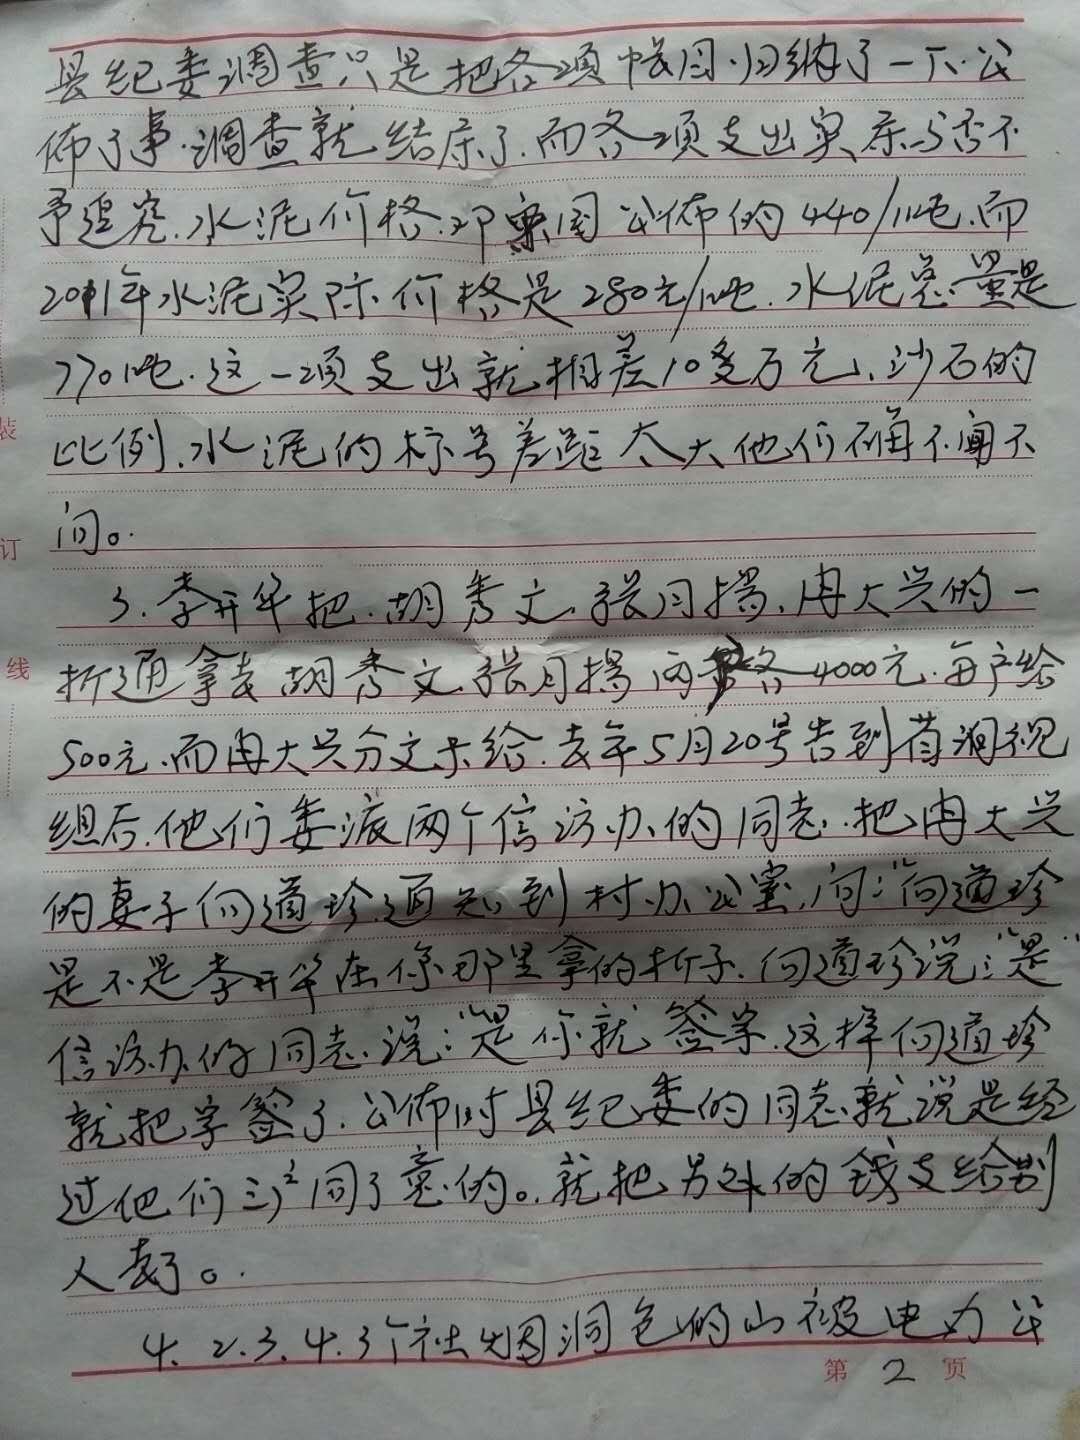 县纪委调查只是把各项帐目归纳了一下.公
佈了事.调查就结束了.而各项支出实际与否不
予追究.水泥价格.邓国公佈的440/吨.而
2011年水泥实际价格是280元/吨.水泥总量是
770吨.这一项支出就相差10多万元、沙石的
比例.水泥的标号差距太大他们不闻不
问。
3.李开华把.胡秀文.张月揚.冉大兴的一
折通拿去胡秀文.张月揚两户各4000元.每户给
500元.而冉大兴分文未给.去年5月20号告到视
组后.他们委派两个信访办的同志.把冉大兴
的妻子向道珍通知到村办公室,问:"向道珍
是不是李开华在你那里拿的折子.向道珍说:"是"
信访办的同志.说:"是你就签字.这样向道珍
就把字签了.公佈时县纪委的同志就说是经
过他们三户同了意的。就把另外的钱支给别
人去了。
4.2.3.4.3个社烟洞包的山被电力公
装
订
线
第 2 页